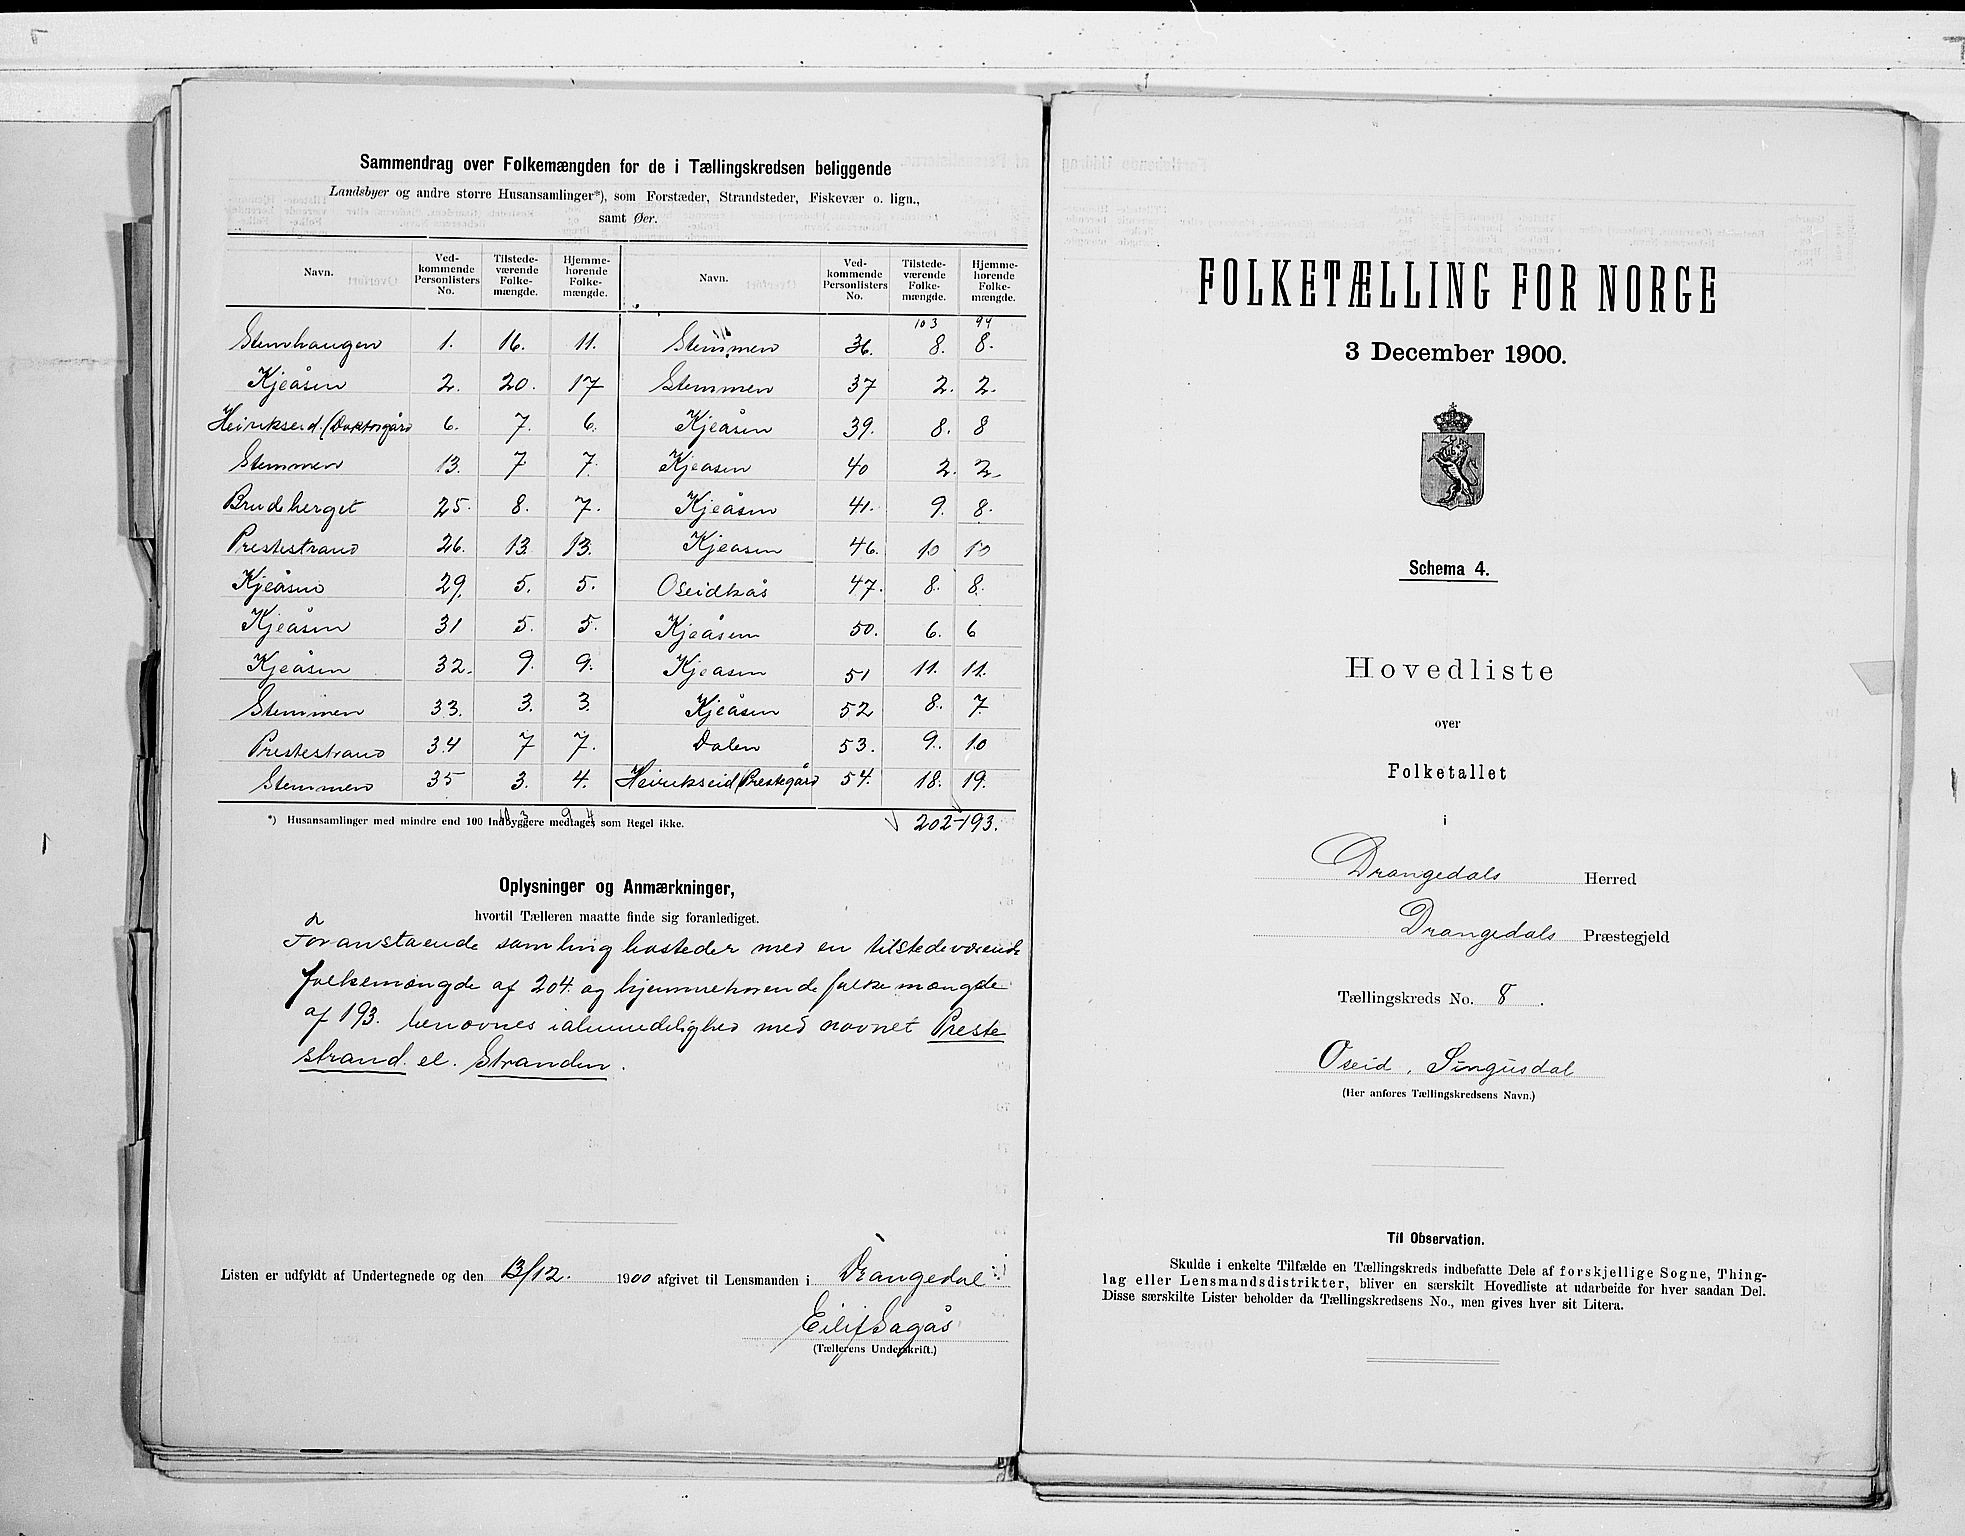 Sammendrag over Folkemængden for de i Tællingskredsen beliggende
Landsbyer og andre større Husansamlinger*), som Forstæder, Strandsteder, Fiskevær o. lign.,
samt Øer.
Navn. Vedkommende Personlisters No. Tilstedeværende Folkemængde. Hjemmehørende Folkemængde. Navn. Vedkommende Personlisters No. Tilstedeværende Folkemængde. Hjemmehørende Folkemængde.
103 94
Stemhaugen 1. 16. 11. Stemmen 36. 8. 8.
Kjeåsen 2. 20. 17 Stemmen 37 2. 2.
Heirekseid (Doktorgård 6. 7. 6. Kjeåsen 39. 8. 8
Stemmen 13. 7 7. Kjeåsen 40 2. 2
Brudeberget 25. 8. 7. Kjeåsen 41. 9. 8.
Prestestrand 26. 13. 13. Kjeasen 46. 10 10
Kjeåsen 29. 5. 5. Oseidkås 47. 8. 8.
Kjeåsen 31 5. 5. Kjeåsen 50. 6. 6
Kjeåsen 32. 9. 9. Kjeasen 51 11. 11.
Stemmen 33. 3. 3. Kjeåsen 52 8. 7.
Prestestrand 34 7 7. Dalen 53. 9. 10
Stemmen 35 3. 4. Heirekseid (Prestegård 54. 18. 19.
103 94
*) Husansamlinger med mindre end 100 Indbyggere medtages som Regel ikke.
202-193.
Oplysninger og Anmærkninger,
hvortil Tælleren maatte finde sig foranlediget.
Foranstaende samling husteder med en tilstedeværende
folkemængde af 204. og hjemmehørende folkemængde
af 193. benævnes i almindelighed med navnet Preste
strand. el. Stranden.
Listen er udfyldt af Undertegnede og den 13/12. 1900 afgivet til Lensmanden i Drangedal
Eilif Sagås
(Tællerens Underskrift.)
FOLKETÆLLING FOR NORGE
3 December 1900.
Schema 4.
Hovedliste
over
Folketallet
i
Drangedals Herred
Drangedals Præstegjeld
Tællingskreds No. 8.
Oseid, Singusdal
(Her anføres Tællingskredsens Navn.)
Til Observation.
Skulde i enkelte Tilfælde en Tællingskreds indbefatte Dele af forskjellige Sogne, Thing-
lag eller Lensmandsdistrikter, bliver en særskilt Hovedliste at udarbeide for hver saadan Del.
Disse særskilte Lister beholder da Tællingskredsens No., men gives hver sit Litera.